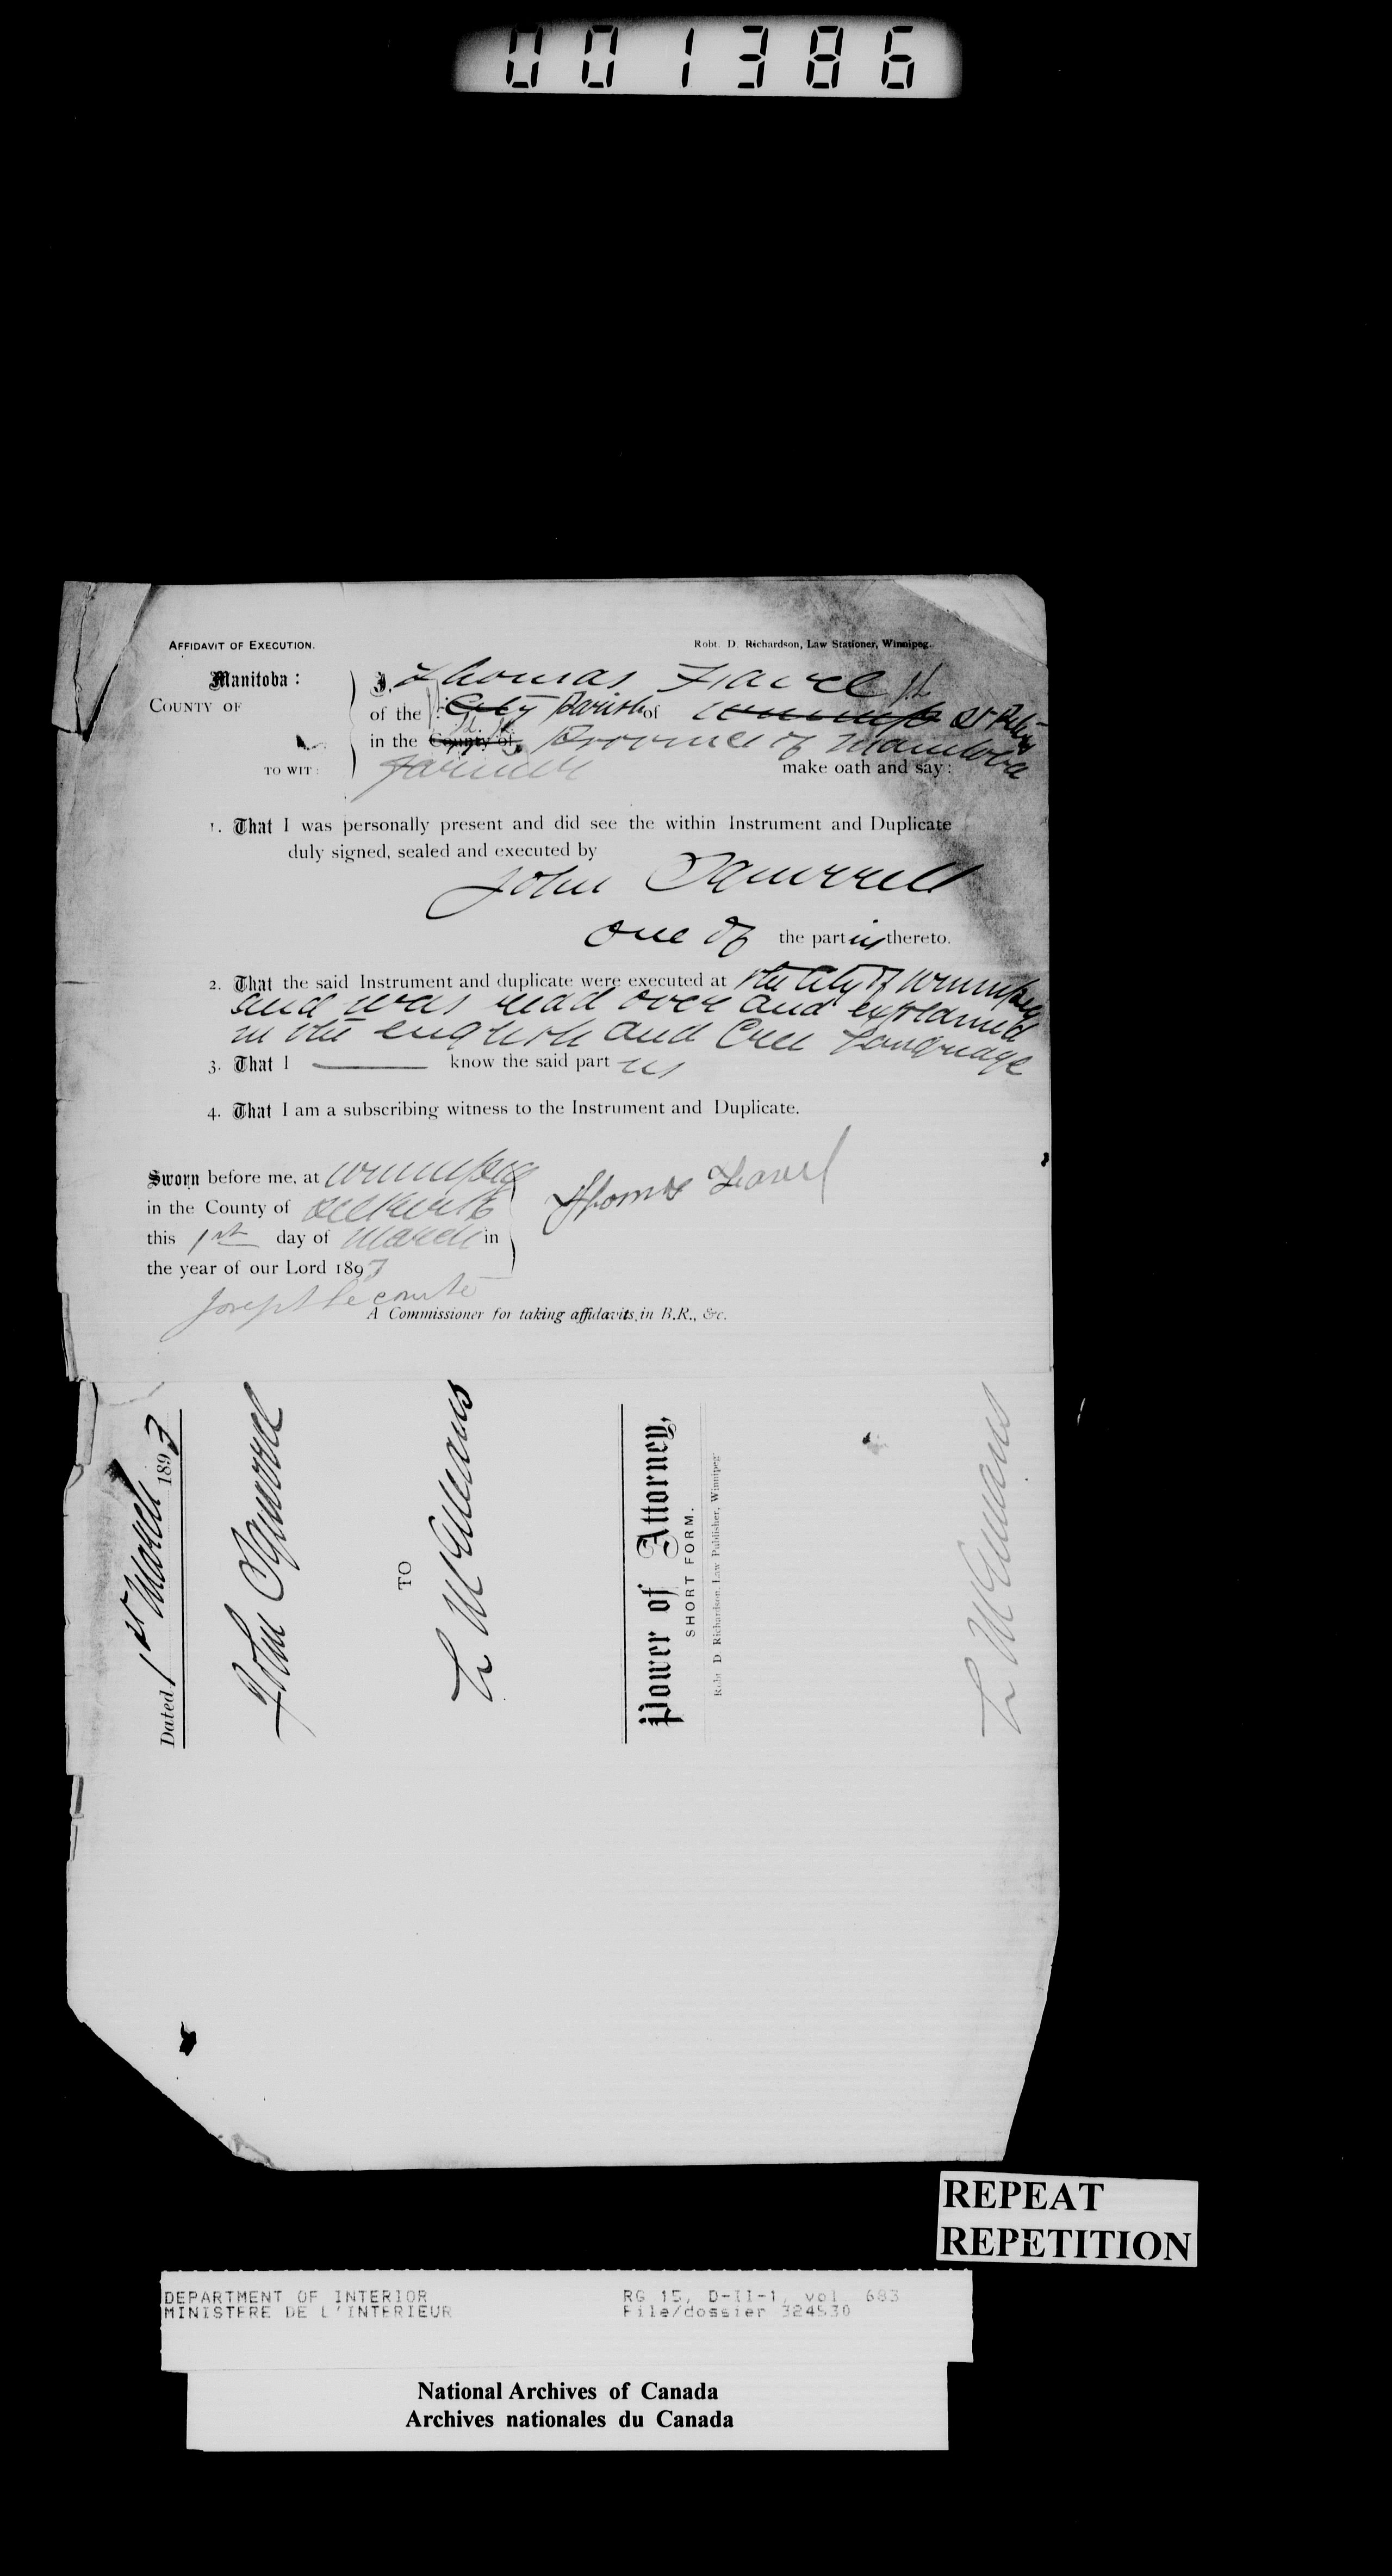 001386
AFFIDAVIT OF EXECUTION.
Robt. D. Richardson, Law Stationer, Winnipeg.
Manitoba:
COUNTY OF
TO WIT:
I, Thomas Favel
of the City Parish of Winnipeg St Peters
in the County of, Province of Manitoba
Farmer make oath and say:
1. That I was personally present and did see the within Instrument and Duplicate
duly signed, sealed and executed by
John Squirrell
one of the parties thereto.
2. That the said Instrument and duplicate were executed at the City of Winnipeg
and was read over and explained
in the english and Cree Language
3. That I know the said parties
4. That I am a subscribing witness to the Instrument and Duplicate.
Sworn before me, at Winnipeg
in the County of Selkirk
this 1st day of March in
the year of our Lord 1893
Thomas Favel
Joseph Lecomte
A Commissioner for taking affidavits in B.R., &c.
Dated 1st March 1893
John Squirrel
TO
L McMeans
Power of Attorney,
SHORT FORM.
Robt D. Richardson, Law Publisher, Winnipeg
L McMeans
REPEAT
REPETITION
DEPARTMENT OF INTERIOR
MINISTERE DE L'INTERIEUR
RG 15, D-II-1, vol. 683
File/dossier 324530
National Archives of Canada
Archives nationales du Canada